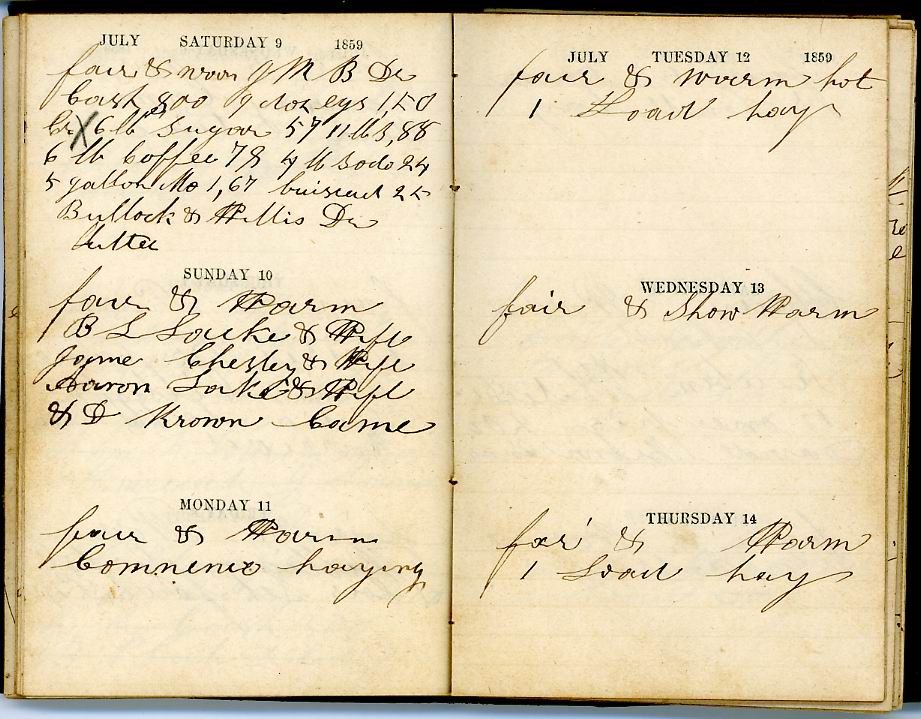 JULY SATURDAY 9 1859
fair & worm J M B Dr
Cash 800 9 doz egs 1,50
Cr X 6 lb Sugar 57 11 lb 3,88
6 lb Coffee 78 4 lb Soda 24
5 gallon Mo 1,67 24
Bullock & Hillis Dr
SUNDAY 10
fair & Warm
B L Locke & Wife
Chesley & Wife
Aaron Locke & Wife
& D Krown Came
MONDAY 11
fair & Warm
Commence haying
JULY TUESDAY 12 1859
fair & worm hot
1 Load hay
WEDNESDAY 13
fair & Show Warm
THURSDAY 14
fair & Warm
1 Load hay